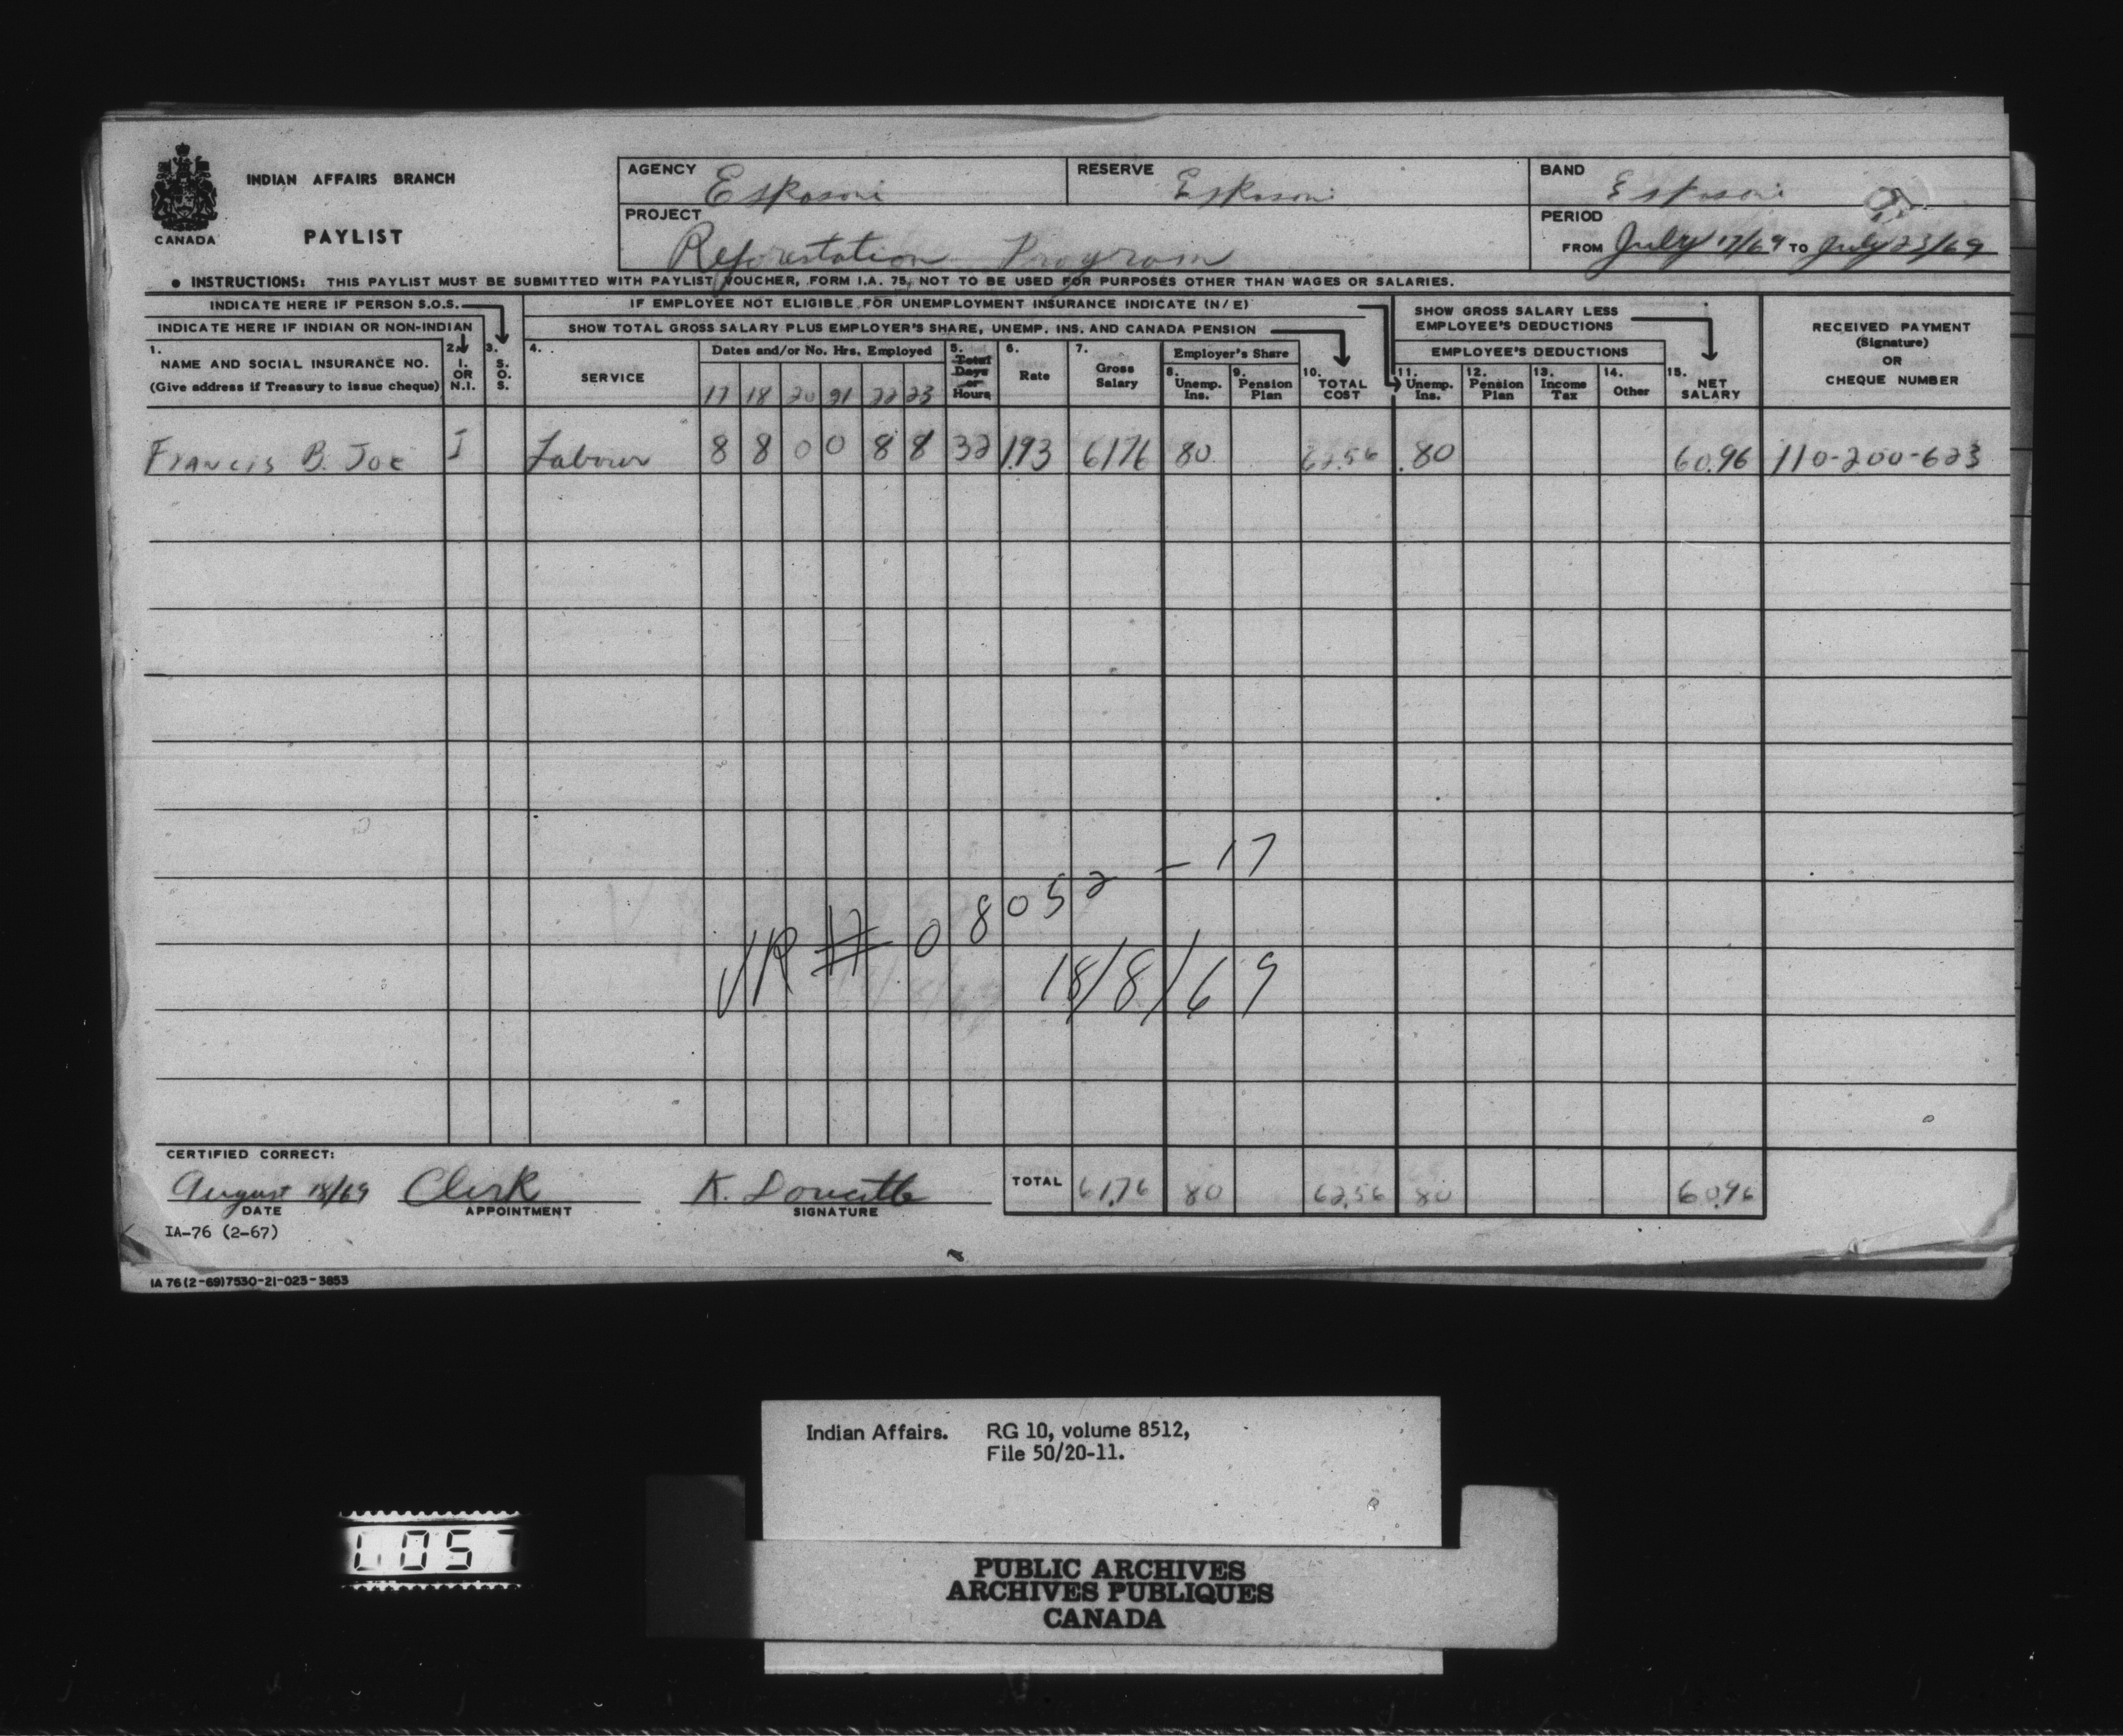 INDIAN AFFAIRS BRANCH
PAYLIST
CANADA
AGENCY Eskasoni
RESERVE Eskasoni
BAND Eskasoni
PROJECT Reforestation Program
PERIOD
FROM July 17/69 TO July 23/69
• INSTRUCTIONS: THIS PAYLIST MUST BE SUBMITTED WITH PAYLIST VOUCHER, FORM I.A. 75, NOT TO BE USED FOR PURPOSES OTHER THAN WAGES OR SALARIES.
INDICATE HERE IF PERSON S.O.S.
INDICATE HERE IF INDIAN OR NON-INDIAN
IF EMPLOYEE NOT ELIGIBLE FOR UNEMPLOYMENT INSURANCE INDICATE (N/E)
SHOW TOTAL GROSS SALARY PLUS EMPLOYER'S SHARE, UNEMP. INS. AND CANADA PENSION
SHOW GROSS SALARY LESS
EMPLOYEE'S DEDUCTIONS
RECEIVED PAYMENT
(Signature)
OR
CHEQUE NUMBER
1. NAME AND SOCIAL INSURANCE NO.
(Give address if Treasury to issue cheque)
2. I. OR N.I.
3. S. O. S.
4. SERVICE
Dates and/or No. Hrs. Employed
17 18 20 21 22 23
5. Total Days or Hours
6. Rate
7. Gross Salary
Employer's Share
8. Unemp. Ins.
9. Pension Plan
10. TOTAL COST
EMPLOYEE'S DEDUCTIONS
11. Unemp. Ins.
12. Pension Plan
13. Income Tax
14. Other
15. NET SALARY
Francis B. Joe I Labour 8 8 0 0 8 8 32 1.93 61.76 80 62.56 .80 60.96 110-200-623
VR # 08052 - 17
18/8/69
CERTIFIED CORRECT:
August 18/69 Clerk K. Doucette
DATE APPOINTMENT SIGNATURE
TOTAL 61.76 80 62.56 80 60.96
IA-76 (2-67)
IA 76 (2-69) 7530-21-023-3853
Indian Affairs. RG 10, volume 8512,
File 50/20-11.
PUBLIC ARCHIVES
ARCHIVES PUBLIQUES
CANADA